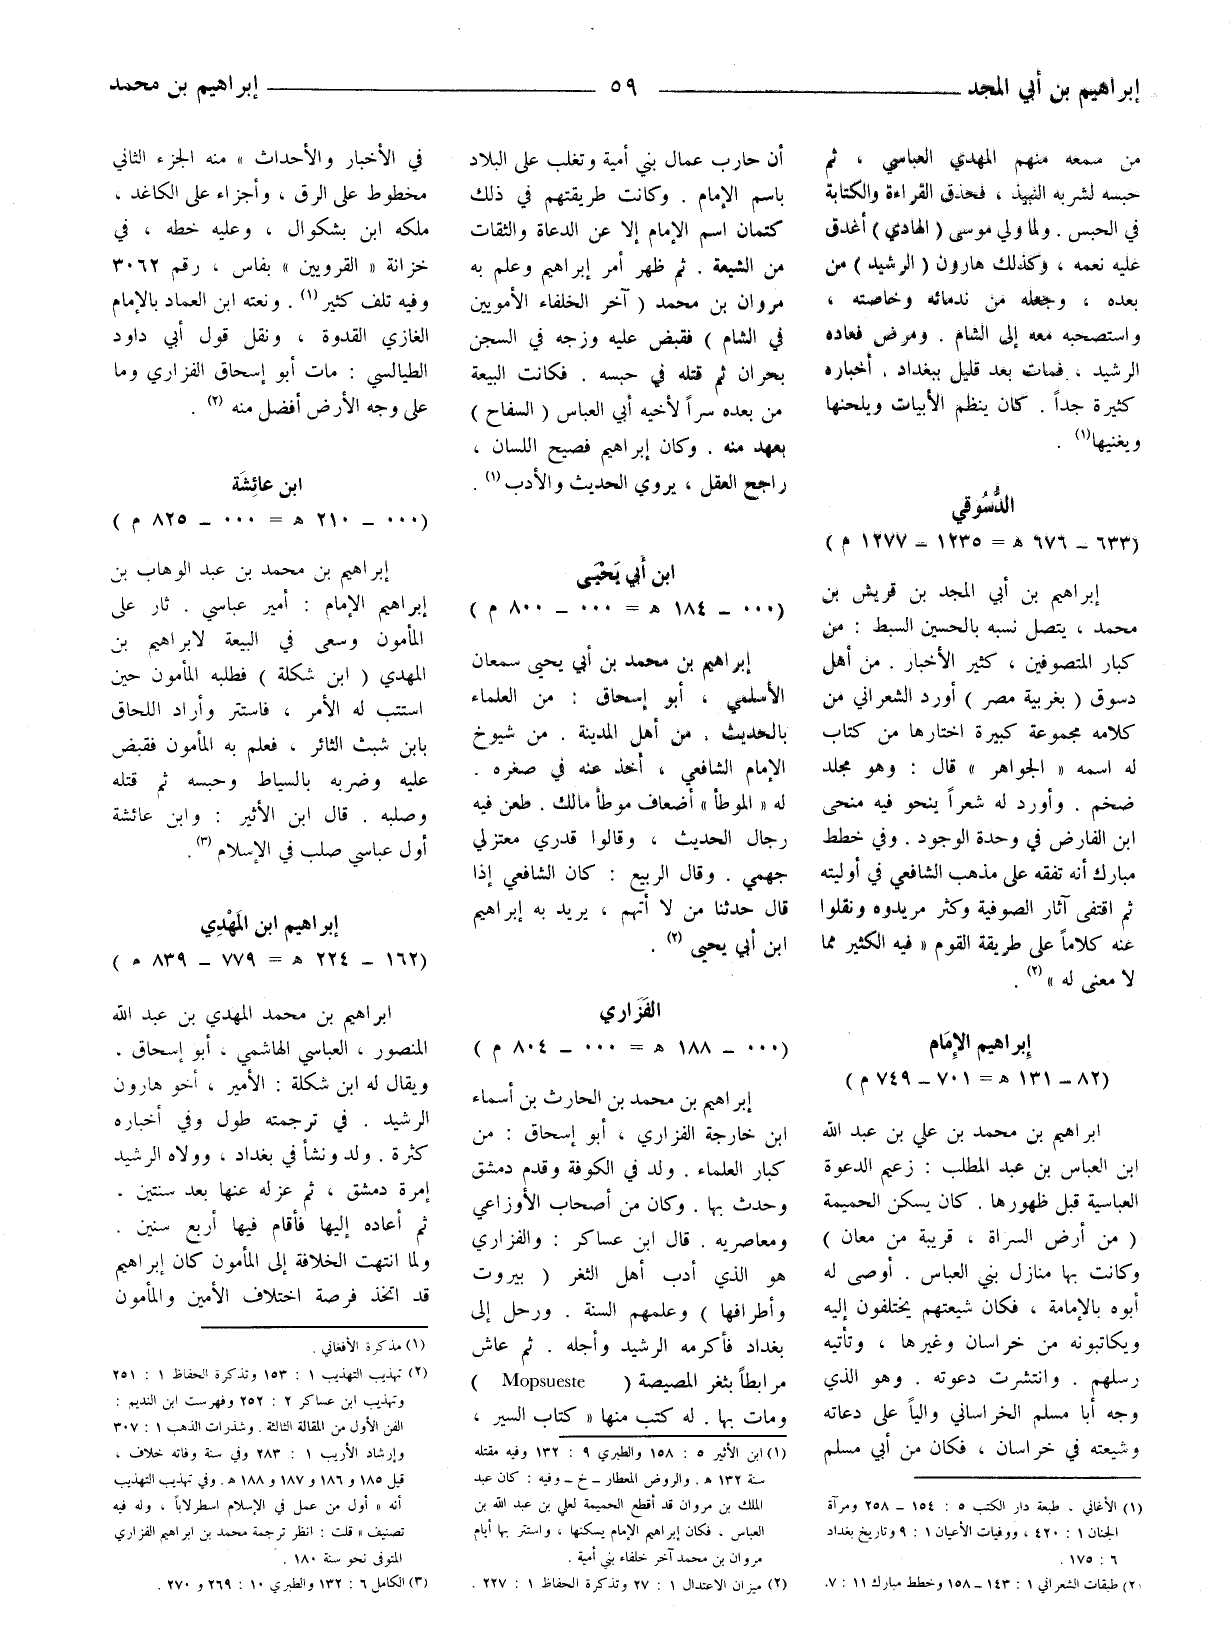 إبراهيم بن أبي المجد ٥٩ إبراهيم بن محمد
من سمعه منهم المهدي العباسي ، ثم
حبسه لشربه النبيذ ، فحذق القراءة والكتابة
في الحبس . ولما ولي موسى ( الهادي ) أغدق
عليه نعمه ، وكذلك هارون ( الرشيد ) من
بعده ، وجعله من ندمائه وخاصته ،
واستصحبه معه إلى الشام . ومرض فعاده
الرشيد ، فمات بعد قليل ببغداد . أخباره
كثيرة جداً . كان ينظم الأبيات ويلحنها
ويغنيها (١) .
الدُّسُوقي
(٦٣٣ – ٦٧٦ ه = ١٢٣٥ – ١٢٧٧ م )
إبراهيم بن أبي المجد بن قريش بن
محمد ، يتصل نسبه بالحسين السبط : من
كبار المتصوفين ، كثير الأخبار . من أهل
دسوق ( بغربية مصر ) أورد الشعراني من
كلامه مجموعة كبيرة اختارها من كتاب
له اسمه « الجواهر » قال : وهو مجلد
ضخم . وأورد له شعراً ينحو فيه منحى
ابن الفارض في وحدة الوجود . وفي خطط
مبارك أنه تفقه على مذهب الشافعي في أوليته
ثم اقتفى آثار الصوفية وكثر مريدوه ونقلوا
عنه كلاماً على طريقة القوم « فيه الكثير مما
لا معنى له » (٢) .
إبراهيم الإِمَام
(٨٢ – ١٣١ ه = ٧٠١ – ٧٤٩ م )
ابراهيم بن محمد بن علي بن عبد الله
ابن العباس بن عبد المطلب : زعيم الدعوة
العباسية قبل ظهورها . كان يسكن الحميمة
( من أرض السراة ، قريبة من معان )
وكانت بها منازل بني العباس . أوصى له
أبوه بالإمامة ، فكان شيعتهم يختلفون إليه
ويكاتبونه من خراسان وغيرها ، وتأتيه
رسلهم . وانتشرت دعوته . وهو الذي
وجه أبا مسلم الخراساني والياً على دعاته
وشيعته في خراسان ، فكان من أبي مسلم
(١) الأغاني . طبعة دار الكتب ٥ : ١٥٤ – ٢٥٨ ومرآة
الجنان ١ : ٤٢٠ ، ووفيات الأعيان ١ : ٩ وتاريخ بغداد
٦ : ١٧٥ .
(٢) طبقات الشعراني ١ : ١٤٣ – ١٥٨ وخطط مبارك ١١ : ٧.
أن حارب عمال بني أمية وتغلب على البلاد
باسم الإمام . وكانت طريقتهم في ذلك
كتمان اسم الإمام إلا عن الدعاة والثقات
من الشيعة . ثم ظهر أمر إبراهيم وعلم به
مروان بن محمد ( آخر الخلفاء الأمويين
في الشام ) فقبض عليه وزجه في السجن
بحران ثم قتله في حبسه . فكانت البيعة
من بعده سراً لأخيه أبي العباس ( السفاح )
بعهد منه . وكان إبراهيم فصيح اللسان ،
راجح العقل ، يروي الحديث والأدب (١) .
ابن أبي يَحْيَى
(٠٠٠ – ١٨٤ ه = ٠٠٠ – ٨٠٠ م )
إبراهيم بن محمد بن أبي يحيى سمعان
الأسلمي ، أبو إسحاق : من العلماء
بالحديث . من أهل المدينة . من شيوخ
الإمام الشافعي ، أخذ عنه في صغره .
له « الموطأ » أضعاف موطأ مالك . طعن فيه
رجال الحديث ، وقالوا قدري معتزلي
جهمي . وقال الربيع : كان الشافعي إذا
قال حدثنا من لا أتهم ، يريد به إبراهيم
ابن أبي يحيى (٢) .
الفَزَاري
(٠٠٠ – ١٨٨ ه = ٠٠٠ – ٨٠٤ م )
إبراهيم بن محمد بن الحارث بن أسماء
ابن خارجة الفزاري ، أبو إسحاق : من
كبار العلماء . ولد في الكوفة وقدم دمشق
وحدث بها . وكان من أصحاب الأوزاعي
ومعاصريه . قال ابن عساكر : والفزاري
هو الذي أدب أهل الثغر ( بيروت
وأطرافها ) وعلمهم السنة . ورحل إلى
بغداد فأكرمه الرشيد وأجله . ثم عاش
مرابطاً بثغر المصيصة ( Mopsueste )
ومات بها . له كتب منها « كتاب السير ،
(١) ابن الأثير ٥ : ١٥٨ والطبري ٩ : ١٣٢ وفيه مقتله
سنة ١٣٢ ه . والروض المعطار – خ – وفيه : كان عبد
الملك بن مروان قد أقطع الحميمة لعلي بن عبد الله بن
العباس . فكان إبراهيم الإمام يسكنها ، واستتر بها أيام
مروان بن محمد آخر خلفاء بني أمية .
(٢) ميزان الاعتدال ١ : ٢٧ وتذكرة الحفاظ ١ : ٢٢٧ .
في الأخبار والأحداث » منه الجزء الثاني
مخطوط على الرق ، وأجزاء على الكاغد ،
ملكه ابن بشكوال ، وعليه خطه ، في
خزانة « القرويين » بفاس ، رقم ٣٠٦٢
وفيه تلف كثير (١) . ونعته ابن العماد بالإمام
الغازي القدوة ، ونقل قول أبي داود
الطيالسي : مات أبو إسحاق الفزاري وما
على وجه الأرض أفضل منه (٢) .
ابن عائِشَة
(٠٠٠ – ٢١٠ ه = ٠٠٠ – ٨٢٥ م )
إبراهيم بن محمد بن عبد الوهاب بن
إبراهيم الإمام : أمير عباسي . ثار على
المأمون وسعى في البيعة لابراهيم بن
المهدي ( ابن شكلة ) فطلبه المأمون حين
استتب له الأمر ، فاستتر وأراد اللحاق
بابن شبث الثائر ، فعلم به المأمون فقبض
عليه وضربه بالسياط وحبسه ثم قتله
وصلبه . قال ابن الأثير : وابن عائشة
أول عباسي صلب في الإسلام (٣) .
إبراهيم ابن المَهْدِي
(١٦٢ – ٢٢٤ ه = ٧٧٩ – ٨٣٩ م )
ابراهيم بن محمد المهدي بن عبد الله
المنصور ، العباسي الهاشمي ، أبو إسحاق .
ويقال له ابن شكلة : الأمير ، أخو هارون
الرشيد . في ترجمته طول وفي أخباره
كثرة . ولد ونشأ في بغداد ، وولاه الرشيد
إمرة دمشق ، ثم عزله عنها بعد سنتين .
ثم أعاده إليها فأقام فيها أربع سنين .
ولما انتهت الخلافة إلى المأمون كان إبراهيم
قد اتخذ فرصة اختلاف الأمين والمأمون
(١) مذكرة الأفغاني .
(٢) تهذيب التهذيب ١ : ١٥٣ وتذكرة الحفاظ ١ : ٢٥١
وتهذيب ابن عساكر ٢ : ٢٥٢ وفهرست ابن النديم :
الفن الأول من المقالة الثالثة . وشذرات الذهب ١ : ٣٠٧
وإرشاد الأريب ١ : ٢٨٣ وفي سنة وفاته خلاف ،
قيل ١٨٥ و ١٨٦ و ١٨٧ و ١٨٨ ه . وفي تهذيب التهذيب
أنه « أول من عمل في الإسلام اسطرلاباً ، وله فيه
تصنيف » قلت : انظر ترجمة محمد بن ابراهيم الفزاري
المتوفى نحو سنة ١٨٠ .
(٣) الكامل ٦ : ١٣٢ والطبري ١٠ : ٢٦٩ و ٢٧٠ .